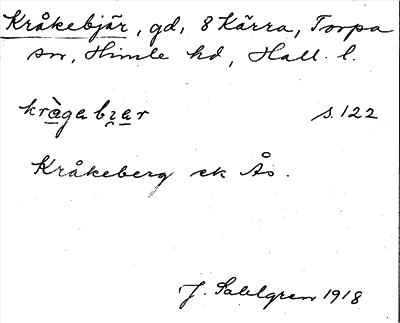 Kråkebjär, gd, 8 Kärra, Torpa
sn, Himle hd, Hall. l.
kràgabɪ̯ar s. 122
Kråkeberg ek Ås.
J. Sahlgren 1918